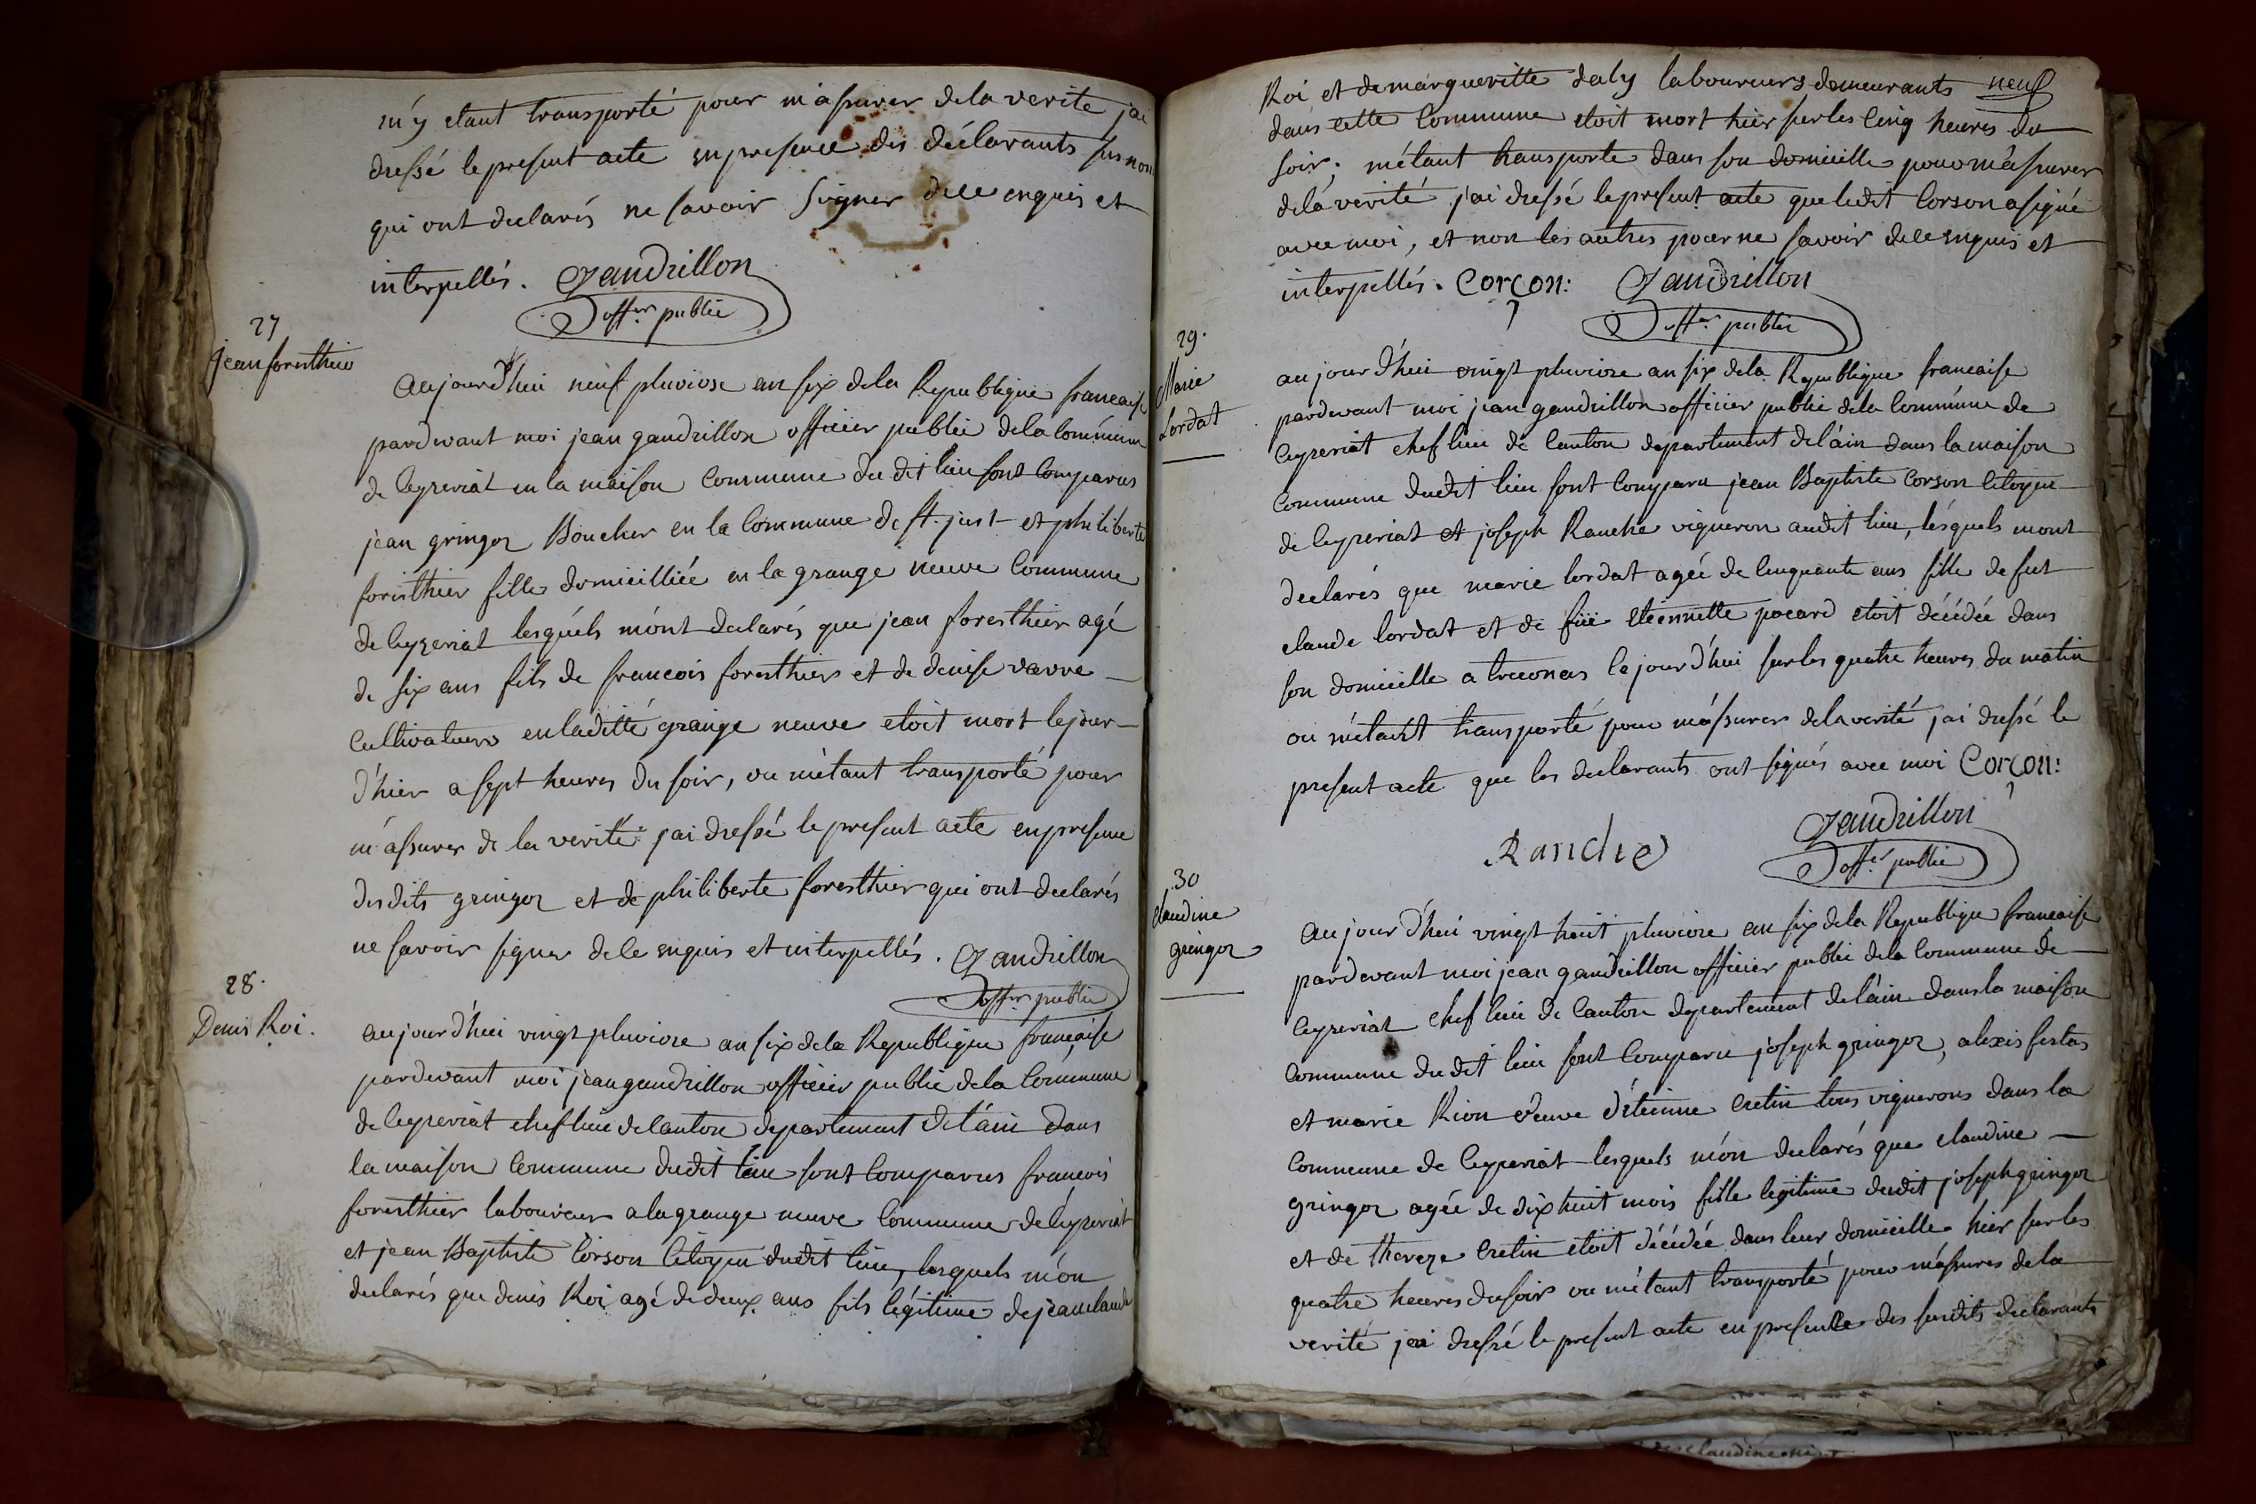 m'y etant transporté pour m'assurer dela verite j'ai
dressé le present acte en presence des déclarants susnom
qui ont declarés ne savoir signer de ce enquis et
interpellés. Gandrillon
offer public
27
jean foresthier
aujourd'hui neuf pluviose an six dela Republique francaise
pardevant moi jean gandrillon officier public dela commune
de Ceyzeriat en la maison commune du dit lieu sont comparus
jean gringoz Boucher en la commune de st. just et philiberte
foresthier fille domicilliée en la grange neuve commune
de Ceyzeriat lesquels m'ont declarés que jean foresthier agé
de six ans fils de francois foresthier et de denise varre
cultivateurs en laditte grange neuve etoit mort le jour
d'hier a sept heures du soir, ou m'etant transporté pour
m'assurer de la verité j'ai dressé le present acte en presence
desdits gringoz et de philiberte foresthier qui ont declarés
ne savoir signer de ce enquis et interpellés. Gandrillon
offer public
28.
Denis Roi.
aujourd'hui vingt pluviose an six dela Republique française
pardevant moi jean gandrillon officier public dela Commune
de Ceyzeriat chef lieu de Canton departement de l'ain dans
la maison Commune dudit lieu sont comparus francois
foresthier laboureur a la grange neuve Commune de Ceyzeriat
et jean Baptiste Corson Citoyen dudit lieu, lesquels m'on
declarés que denis Roi agé de deux ans fils légitime de jean claude
Roi, et de margueritte daly laboureurs demeurants neuf
dans cette Commune etoit mort hier sur les cinq heures du
soir; m'étant transporté dans son domicille pour m'assurer
dela verité j'ai dressé le present acte que ledit Corson a signé
avec moi, et non les autres pour ne savoir de ce enquis et
interpellés. Corçon: Gandrillon
offer public
29.
Marie
Lordat
aujourd'hui vingt pluviose an six dela Republique francaise
pardevant moi jean gandrillon officier public dela Commune de
Ceyzeriat chef lieu de Canton departement de l'ain dans la maison
Commune dudit lieu sont comparu jean Baptiste Corson Citoyen
de Ceyzeriat et joseph Ranche vigneron audit lieu, lesquels mont
declarés que marie lordat agée de cinquante ans fille de fut
claude lordat et de füe etiennette pocard etoit décédée dans
son domicille a treconas cejourd'hui sur les quatre heures du matin
ou m'étant transporté pour m'assurer dela verité j'ai dressé le
present acte que les declarants ont signés avec moi Corçon:
Ranche Gandrillon
offer public
30
Claudine
gringoz
aujourd'hui vingt huit pluviose an six dela Republique francaise
pardevant moi jean gandrillon officier public dela Commune de
Ceyzeriat chef lieu de Canton departement de l'ain dans la maison
Commune dudit lieu sont Comparu joseph gringoz, alexis festas
et marie Rion veuve d'étienne cretin tous vignerons dans la
Commune de Ceyzeriat lesquels m'on declarés que claudine
gringoz agée de dix huit mois fille legitime dudit joseph gringoz
et de thereze cretin etoit décédée dans leur domicille hier sur les
quatre heures du soir ou m'étant transporté pour m'assurer de la
verité j'ai dressé le present acte en presence des susdits declarants